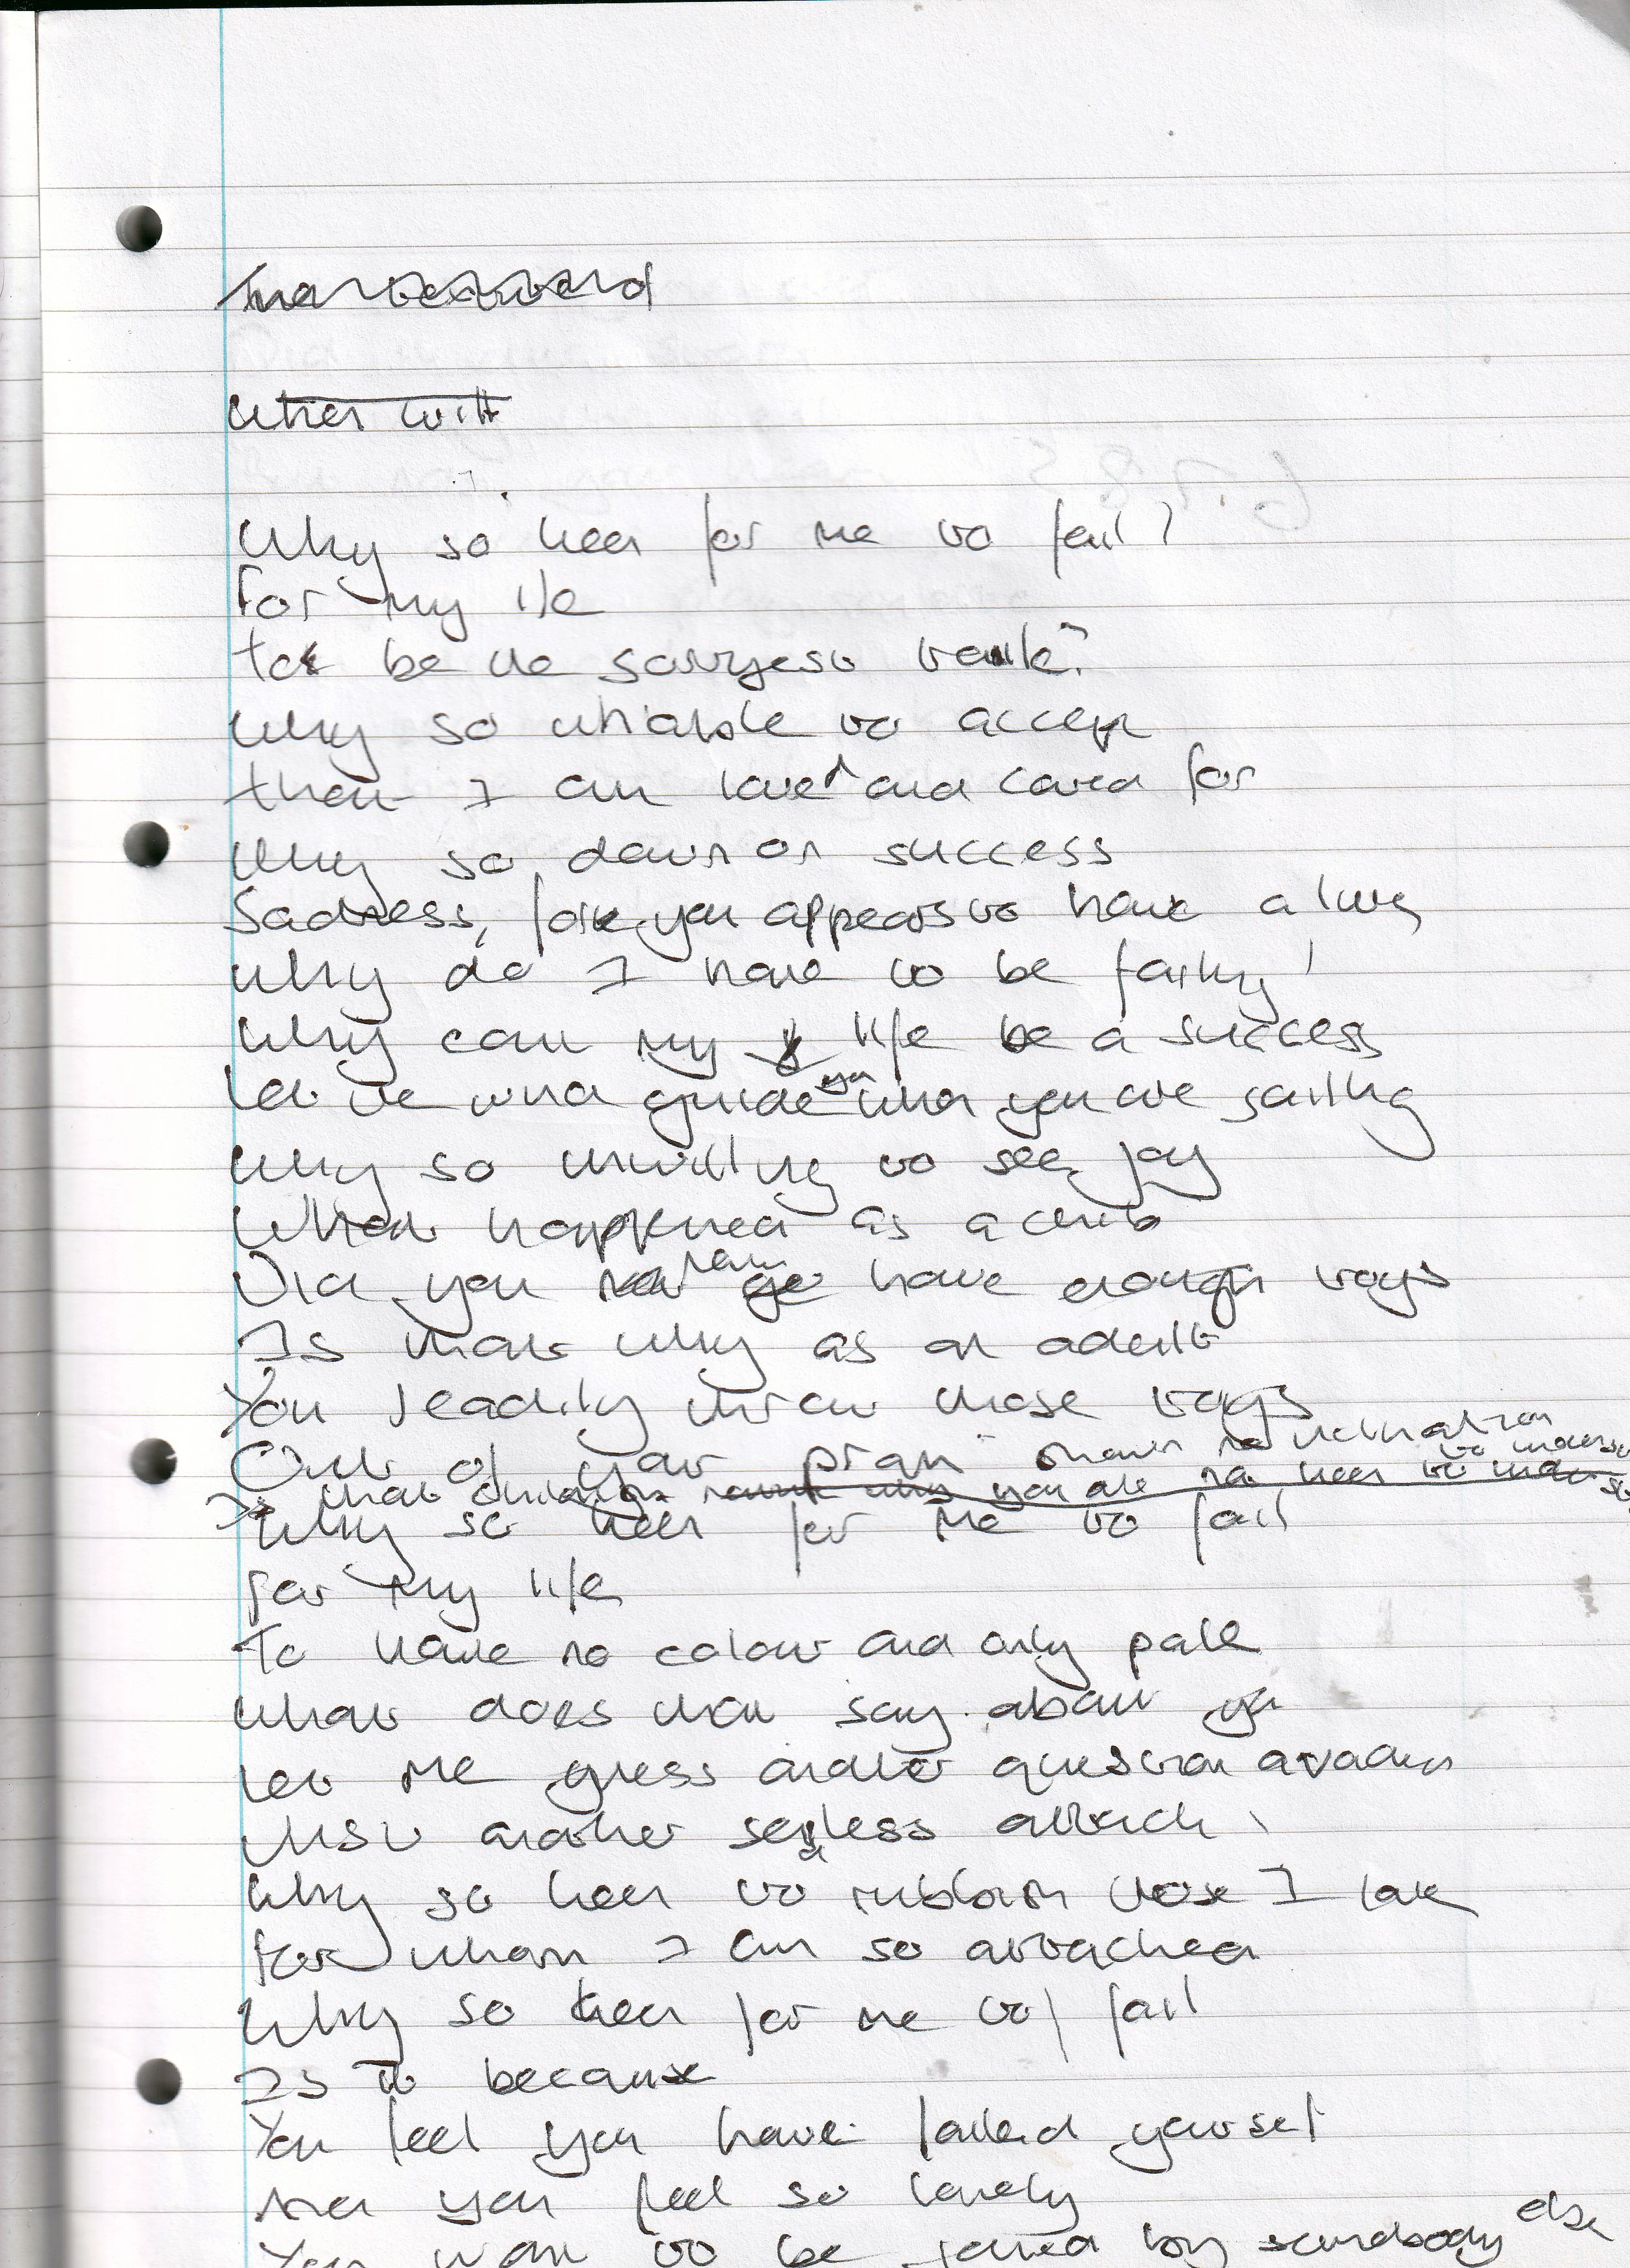 Why so keen for me to fail?
For my life
To be the sorryest tale?
Why so unable to accept
that I am loved and cared for
Why so down on success
Sadness, for you appears to have a lure
Why do I have to be failing!
Why can my life be a success
Let the wind guide you when you are sailing
Why so unwilling to see joy
What happened as a child
Did you not have enough toys
Is that why as an adult
You readily throw those toys
Out of your pram
Why so keen for me to fail
for my life
To have no colour and only pale
What does that say about you
Let me guess another question avoided
Just another senseless attack
Why so keen to rubbish those I love
For whom I am so attached
Why so keen for me to fail
Is it because
You feel you have failed yourself
And you feel so lonely
You want to be joined by somebody else